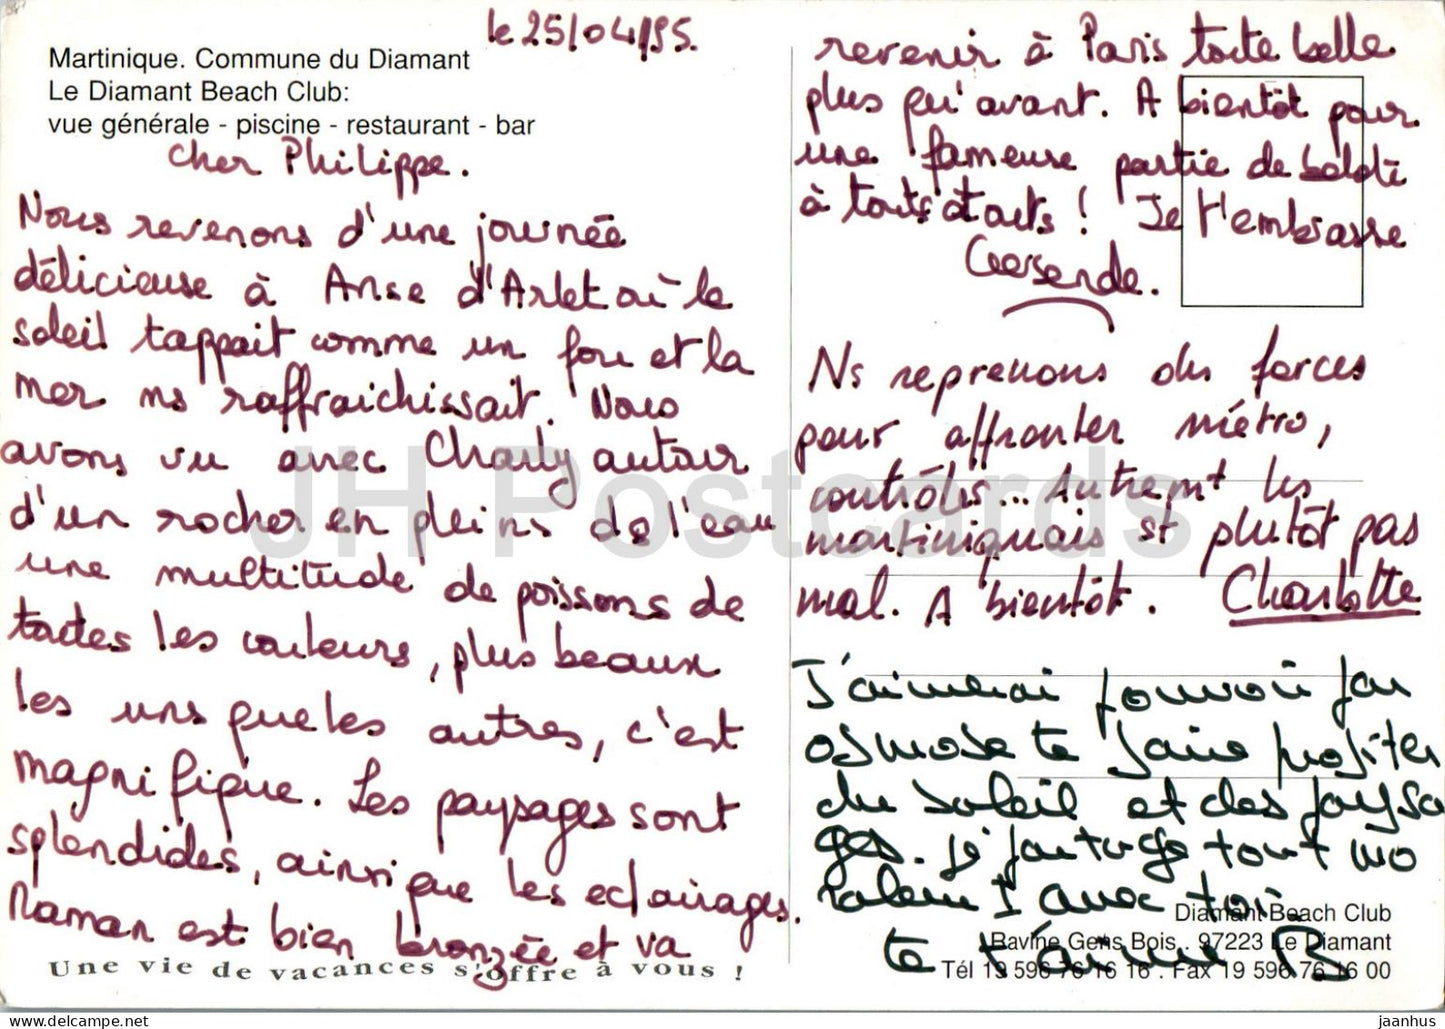 le 25/04/95.
Martinique. Commune du Diamant
Le Diamant Beach Club:
vue générale - piscine - restaurant - bar
Cher Philippe.
Nous revenons d'une journée
délicieuse à Anse d'Arlet où le
soleil tappait comme un fou et la
mer ns raffraichissait. Nous
avons vu avec Charly autour
d'un rocher en pleins de l'eau
une multitude de poissons de
toutes les couleurs, plus beaux
les uns que les autres, c'est
magnifique. Les paysages sont
splendides, ainsi que les eclairages.
Maman est bien bronzée et va
Une vie de vacances s'offre à vous !
revenir à Paris toute belle
plus qu'avant. A bientôt pour
une fameuse partie de
à touts ! Je t'embrasse
Gersende.
Ns reprenons des forces
pour affronter métro,
contrôles... Autremt les
martiniquais st plutôt pas
mal. A bientôt. Charlotte
J'aimerai pouvoir par
osmose te faire profiter
du soleil et des paysa
ges. Je partage tout
avec toi.
te t'aime B
Diamant Beach Club
Ravine Gens Bois . 97223 Le Diamant
Tél 19 596 76 16 16 . Fax 19 596 76 16 00
JH Postcards
jaanhus